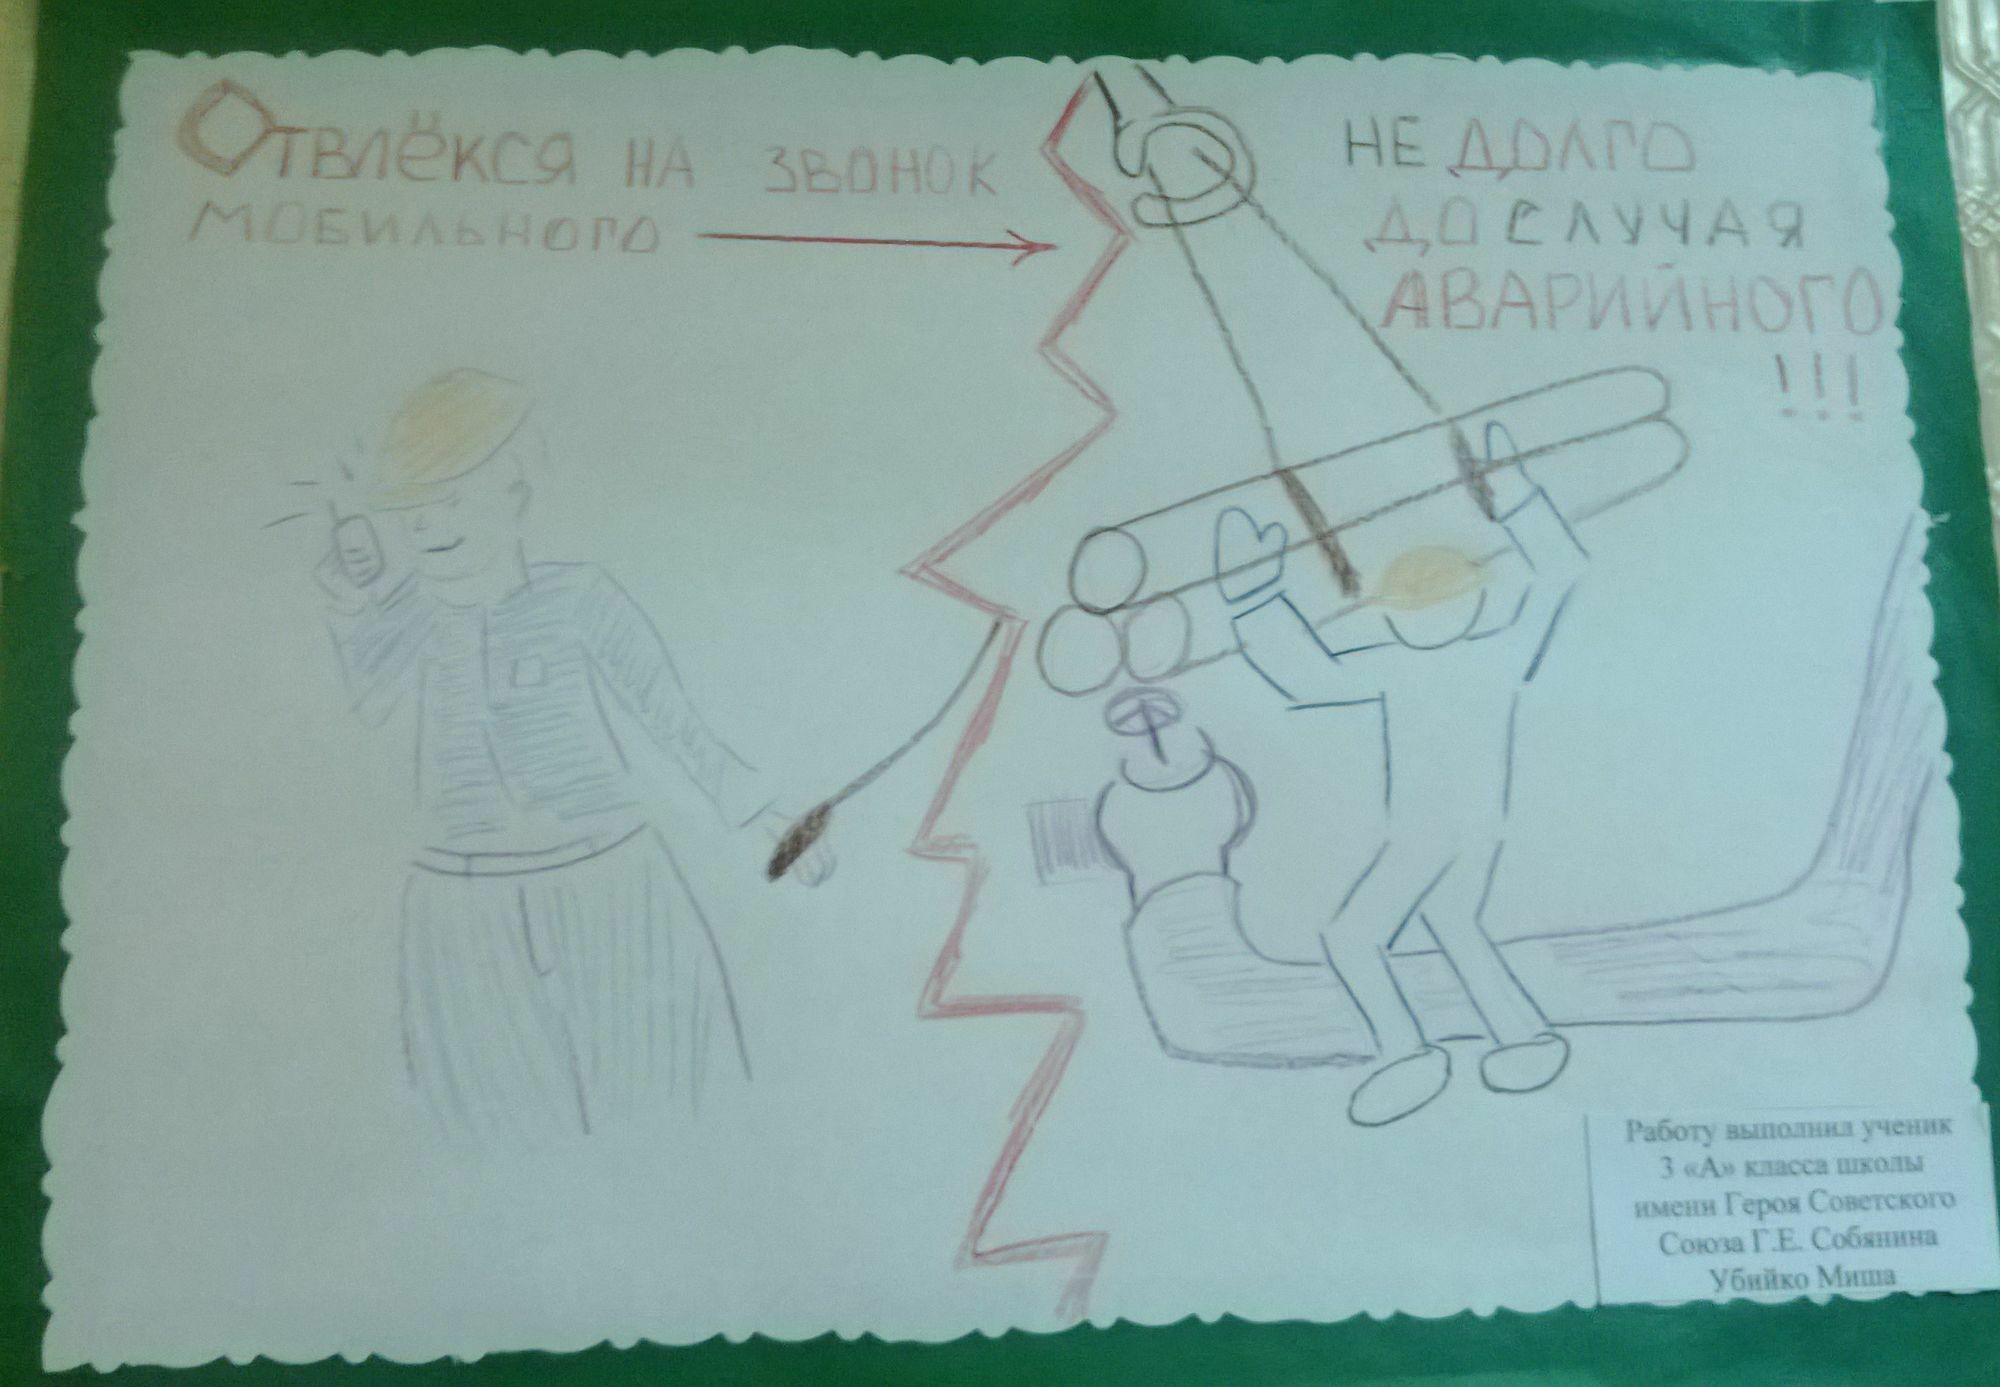 ОТВЛЁКСЯ НА ЗВОНОК
МОБИЛЬНОГО
НЕ ДОЛГО
ДО СЛУЧАЯ
АВАРИЙНОГО
!!!
Работу выполнил ученик
3 «А» класса школы
имени Героя Советского
Союза Г.Е. Собянина
Убийко Миша